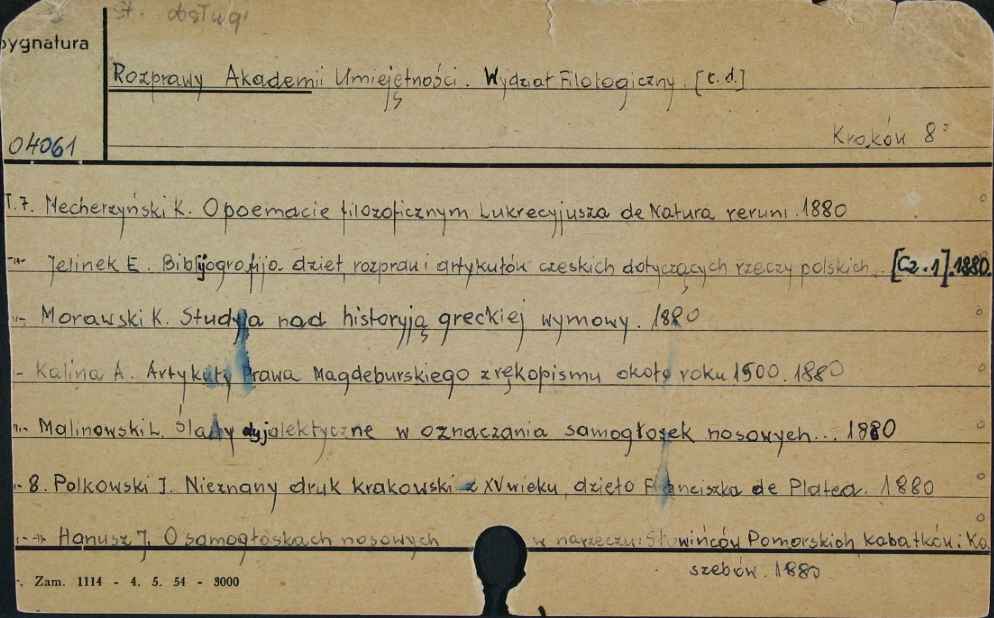 st. obsługi
Sygnatura
Rozprawy Akademii Umiejętności. Wydział Filologiczny. [c.d.]
04061
Kraków 8°
T.7. Mecherzyński K. O poemacie filozoficznym Lukrecyjusza de Natura rerum. 1880
-"- Jelinek E. Biblijografija dzieł, rozpraw i artykułów czeskich dotyczących rzeczy polskich. [Cz. 1]. 1880.
-"- Morawski K. Studyja nad historyją greckiej wymowy. 1880
-"- Kalina A. Artykuły Prawa Magdeburskiego z rękopismu około roku 1500. 1880
-"- Malinowski L. Ślady dyjalektyczne w oznaczania samogłosek nosowych... 1880
-"- 8. Polkowski I. Nieznany druk krakowski z XV wieku, dzieło Franciszka de Platea. 1880
-"- Hanusz J. O samogłoskach nosowych w narzeczu Słowińców Pomorskich, Kabatków i Ka
szebów. 1880
Zam. 1114 - 4. 5. 54 - 3000